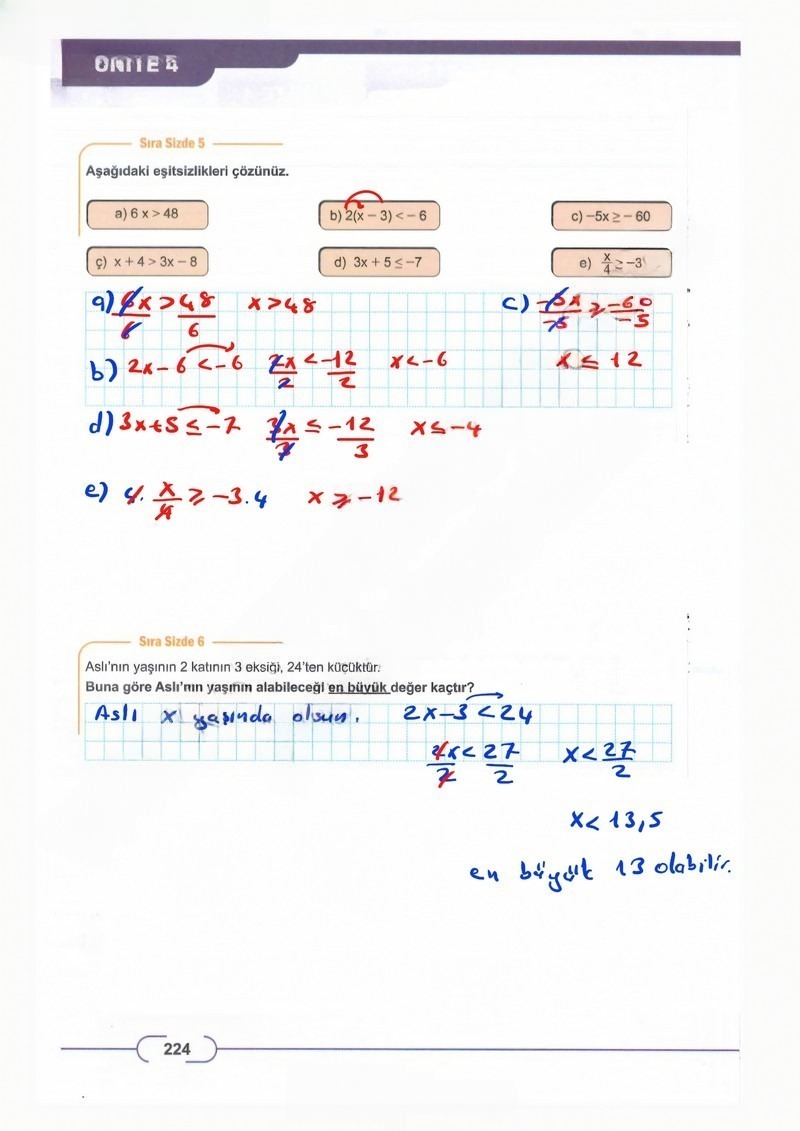 ÜNİTE 4
Sıra Sizde 5
Aşağıdaki eşitsizlikleri çözünüz.
a) 6 x > 48 b) 2(x – 3) < – 6 c) –5x ≥ – 60
ç) x + 4 > 3x – 8 d) 3x + 5 ≤ –7 e) x/4 ≥ –3
a) 6x/6 > 48/6 x > 48 c) -5x/-5 ≥ -60/-5
b) 2x - 6 < -6 2x/2 < -12/2 x < -6 x ≤ 12
d) 3x + 5 ≤ -7 3x/3 ≤ -12/3 x ≤ -4
e) 4. x/4 ≥ -3.4 x ≥ -12
Sıra Sizde 6
Aslı'nın yaşının 2 katının 3 eksiği, 24'ten küçüktür.
Buna göre Aslı'nın yaşının alabileceği en büyük değer kaçtır?
Aslı x yaşında olsun. 2x - 3 < 24
2x/2 < 27/2 x < 27/2
x < 13,5
en büyük 13 olabilir.
224